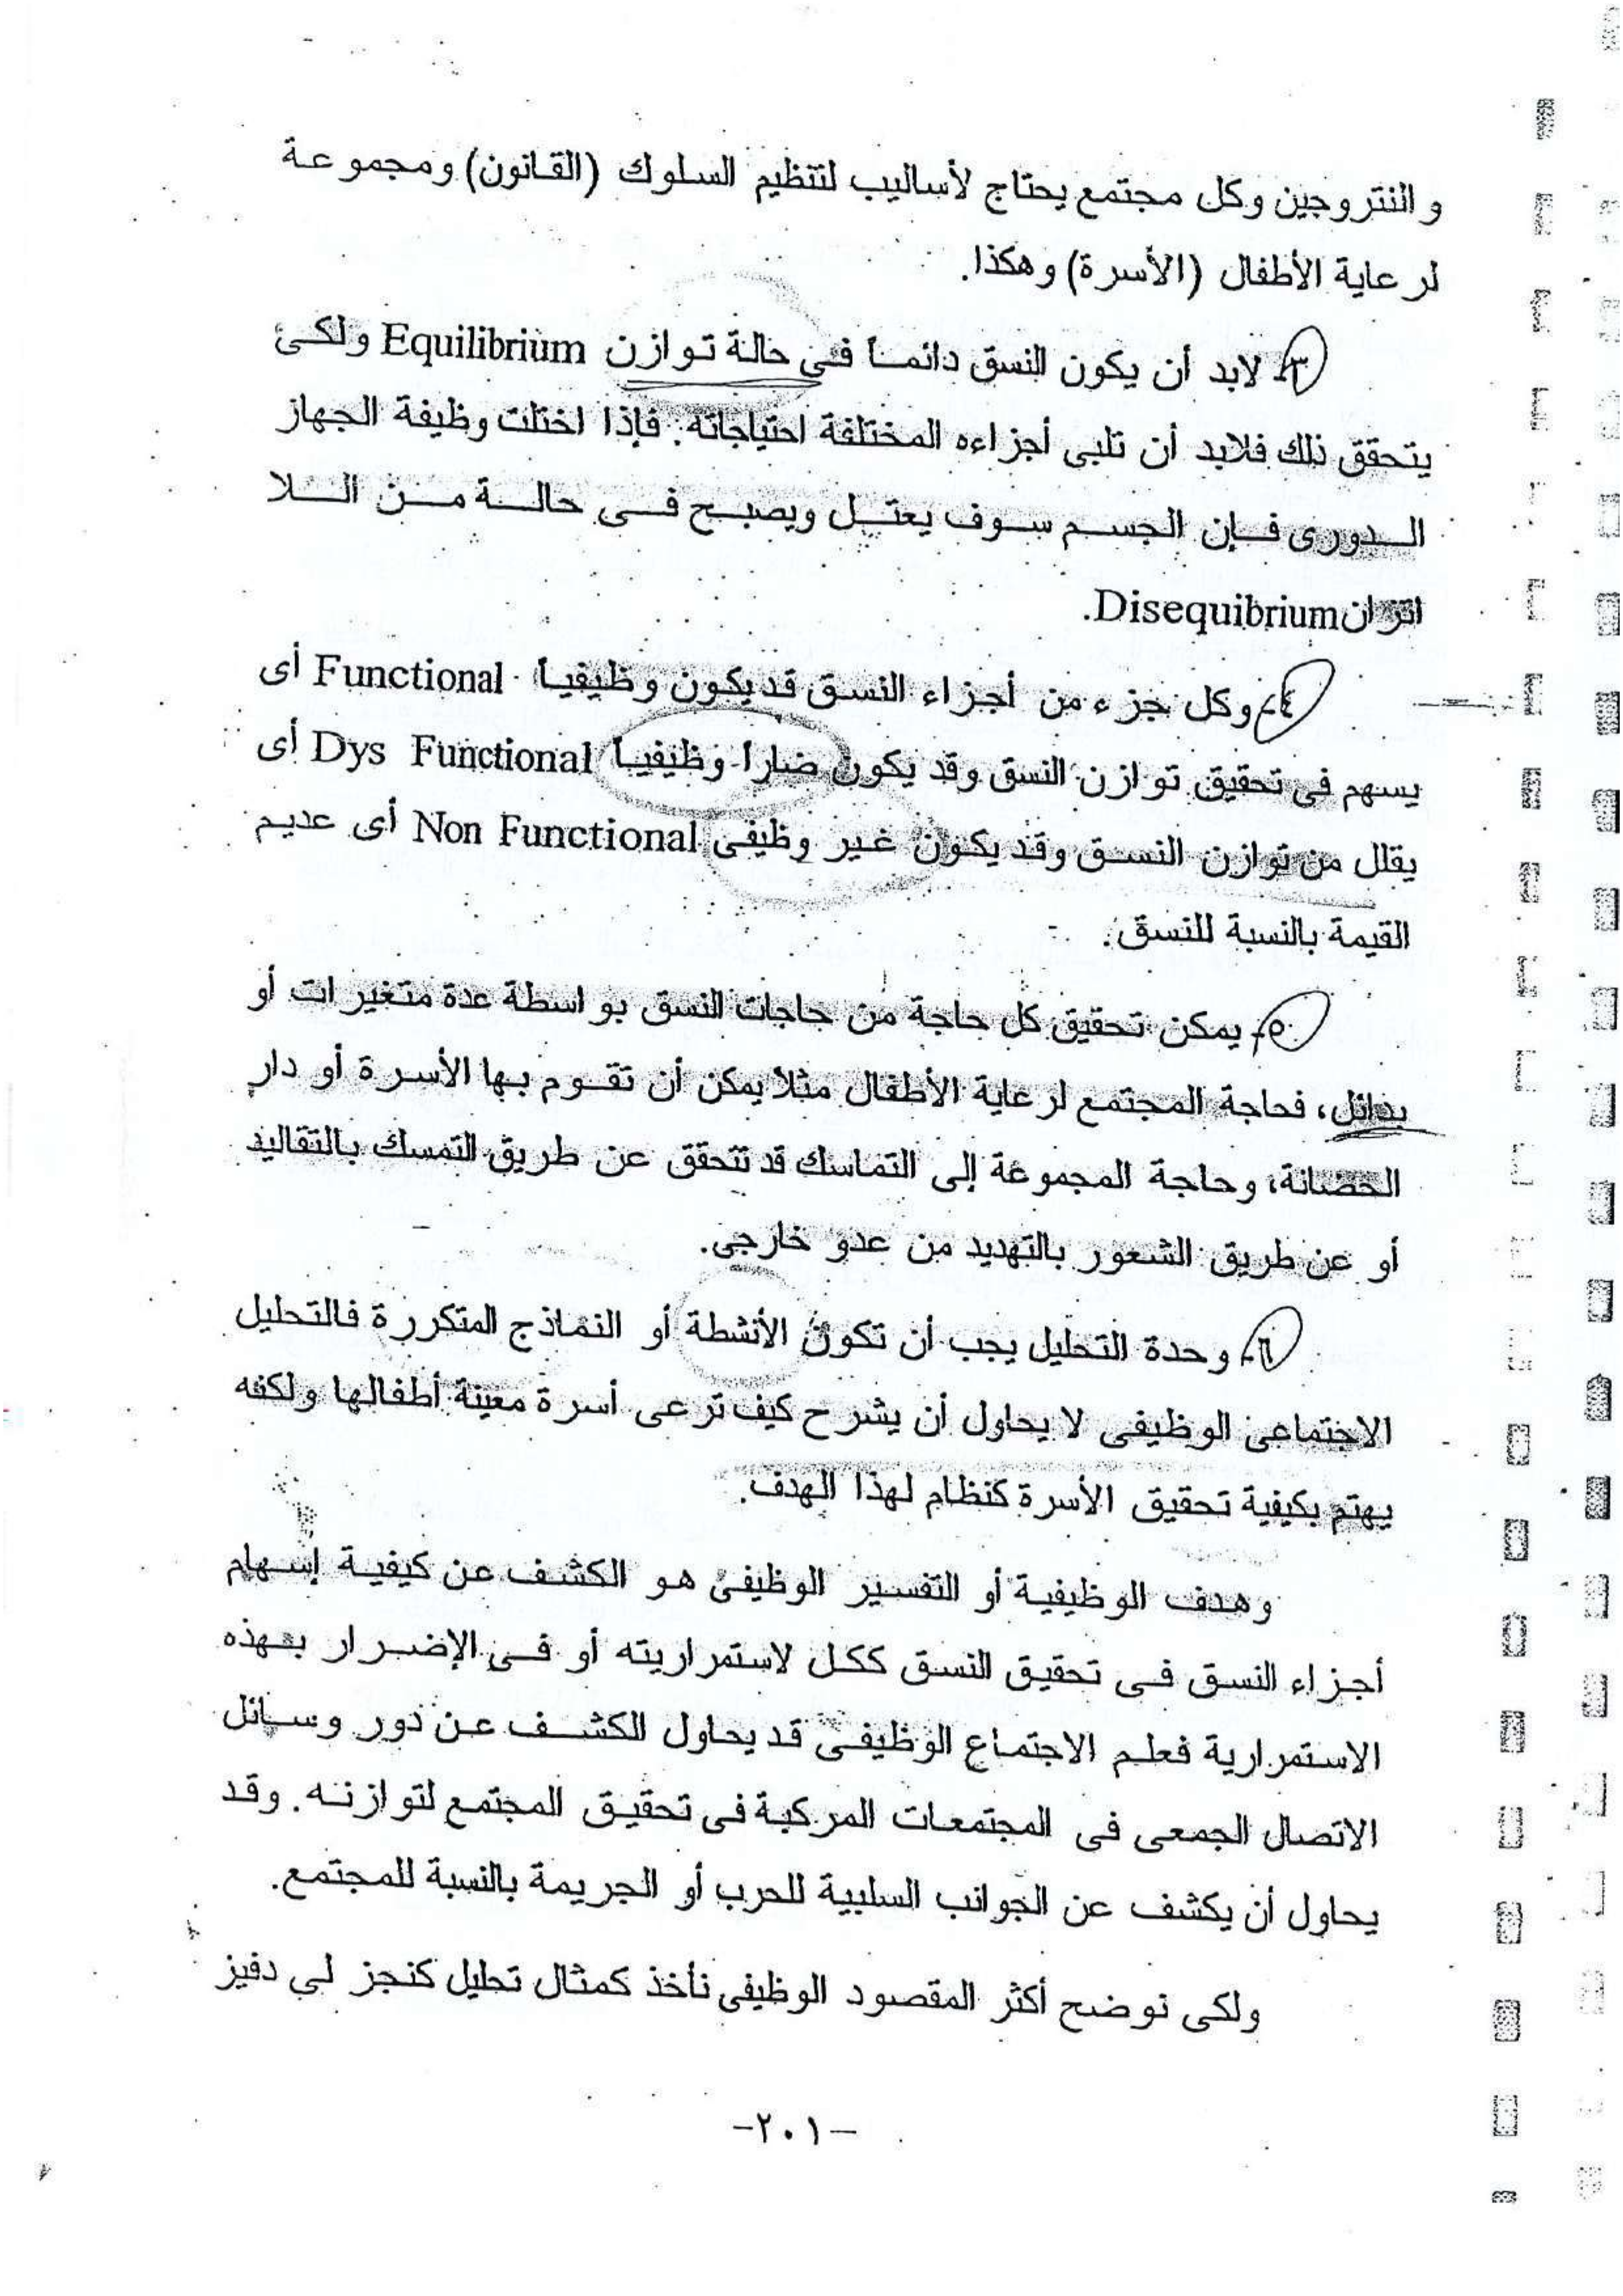 والنتروجين وكل مجتمع يحتاج لأساليب لتنظيم السلوك (القانون) ومجموعة
لرعاية الأطفال (الأسرة) وهكذا.
٣- لابد أن يكون النسق دائماً فى حالة توازن Equilibrium ولكى
يتحقق ذلك فلابد أن تلبى أجزاءه المختلفة احتياجاته. فإذا اختلت وظيفة الجهاز
الدورى فإن الجسم سوف يعتل ويصبح فى حالة من اللا
اتزان Disequibrium.
٤- وكل جزء من أجزاء النسق قد يكون وظيفياً Functional أى
يسهم فى تحقيق توازن النسق وقد يكون ضاراً وظيفياً Dys Functional أى
يقلل من توازن النسق وقد يكون غير وظيفى Non Functional أى عديم
القيمة بالنسبة للنسق.
٥- يمكن تحقيق كل حاجة من حاجات النسق بواسطة عدة متغيرات أو
بدائل، فحاجة المجتمع لرعاية الأطفال مثلا يمكن أن تقوم بها الأسرة أو دار
الحضانة، وحاجة المجموعة إلى التماسك قد تتحقق عن طريق التمسك بالتقاليد
أو عن طريق الشعور بالتهديد من عدو خارجى.
٦- وحدة التحليل يجب أن تكون الأنشطة أو النماذج المتكررة فالتحليل
الاجتماعى الوظيفى لا يحاول أن يشرح كيف ترعى أسرة معينة أطفالها ولكنه
يهتم بكيفية تحقيق الأسرة كنظام لهذا الهدف.
وهدف الوظيفية أو التفسير الوظيفى هو الكشف عن كيفية إسهام
أجزاء النسق فى تحقيق النسق ككل لاستمراريته أو فى الإضرار بهذه
الاستمرارية فعلم الاجتماع الوظيفى قد يحاول الكشف عن دور وسائل
الاتصال الجمعى فى المجتمعات المركبة فى تحقيق المجتمع لتوازنه. وقد
يحاول أن يكشف عن الجوانب السلبية للحرب أو الجريمة بالنسبة للمجتمع.
ولكى نوضح أكثر المقصود الوظيفى نأخذ كمثال تحليل كنجز لى دفيز
-٢٠١-